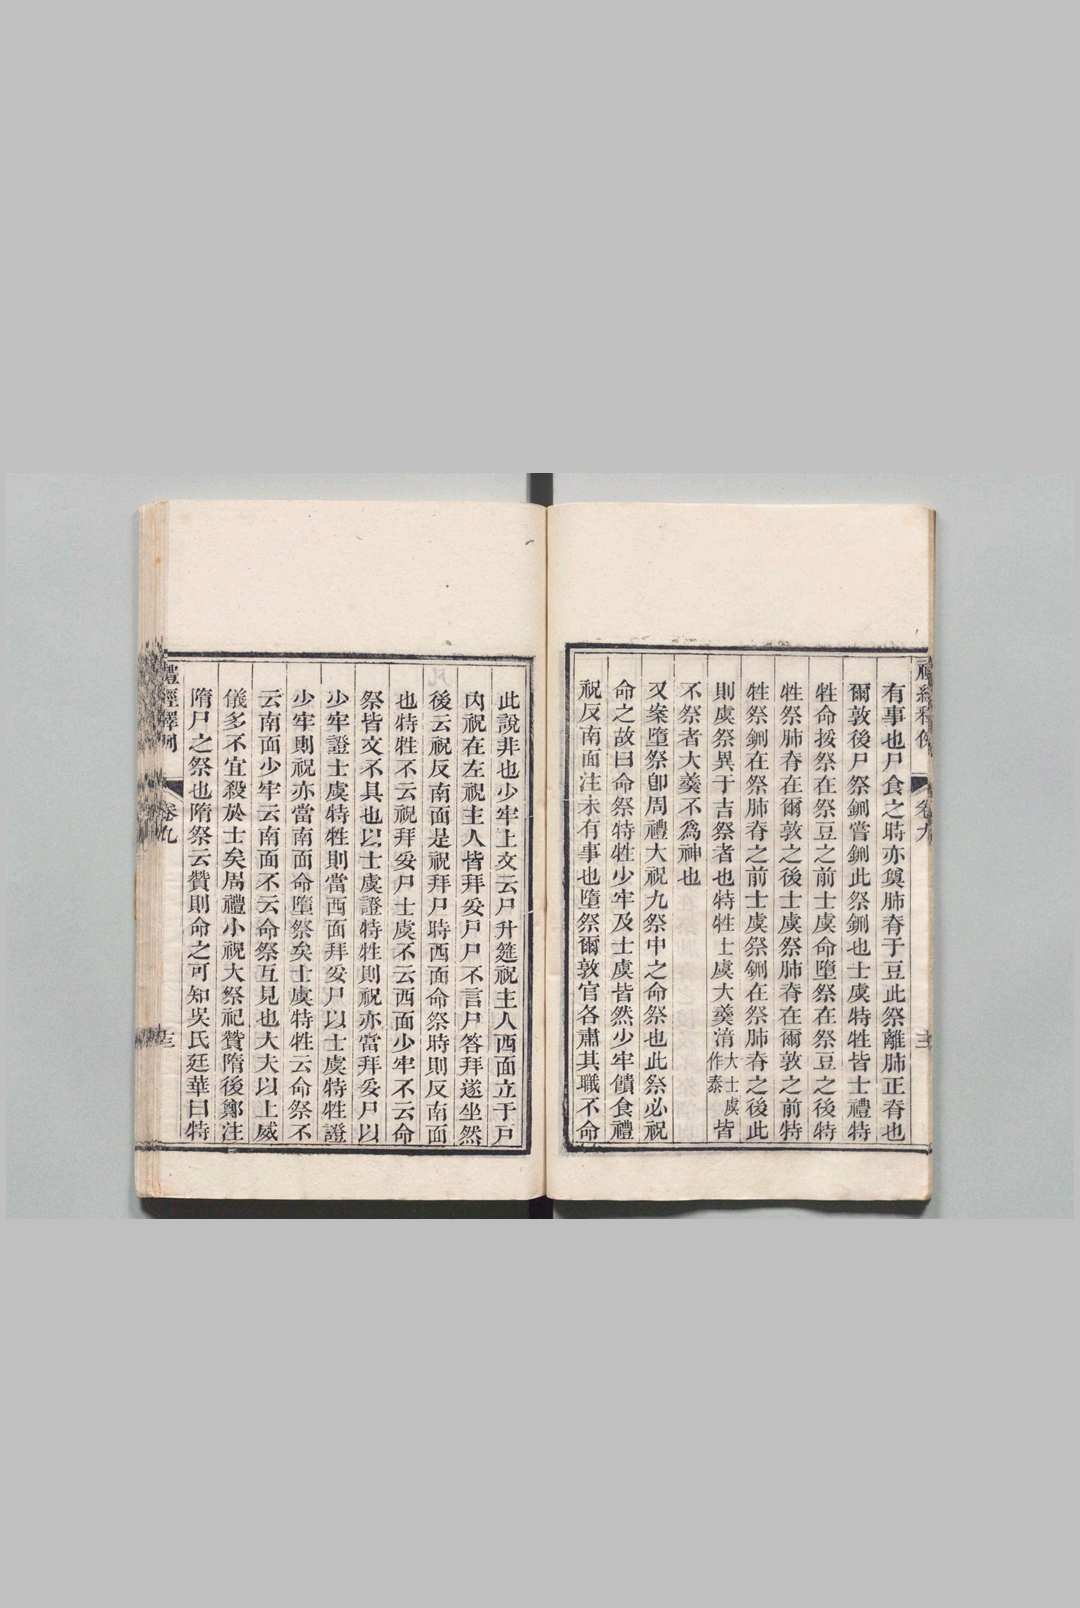 有事也尸食之時亦奠肺脊于豆此祭離肺正脊也
爾敦後尸祭鉶嘗鉶此祭鉶也士虞特牲皆士禮特
牲命挼祭在祭豆之前士虞命墮祭在祭豆之後特
牲祭肺脊在爾敦之後士虞祭肺脊在爾敦之前特
牲祭鉶在祭肺脊之前士虞祭鉶在祭肺脊之後此
則虞祭異于吉祭者也特牲士虞大羹湆大士虞作泰皆
不祭者大羹不為神也
又案墮祭卽周禮大祝九祭中之命祭也此祭必祝
命之故曰命祭特牲少牢及士虞皆然少牢饋食禮
祝反南面注未有事也墮祭爾敦官各肅其職不命
禮經釋例
卷九
三
此說非也少牢上文云尸升筵祝主人西面立于戸
內祝在左祝主人皆拜妥尸尸不言尸答拜遂坐然
後云祝反南面是祝拜尸時西面命祭時則反南面
也特牲不云祝拜妥尸士虞不云西面少牢不云命
祭皆文不具也以士虞證特牲則祝亦當拜妥尸以
少牢證士虞特牲則當西面拜妥尸以士虞特牲證
少牢則祝亦當南面命墮祭矣士虞特牲云命祭不
云南面少牢云南面不云命祭互見也大夫以上威
儀多不宜殺於士矣周禮小祝大祭祀贊隋後鄭注
隋尸之祭也隋祭云贊則命之可知吳氏廷華曰特
禮經釋例
卷九
三